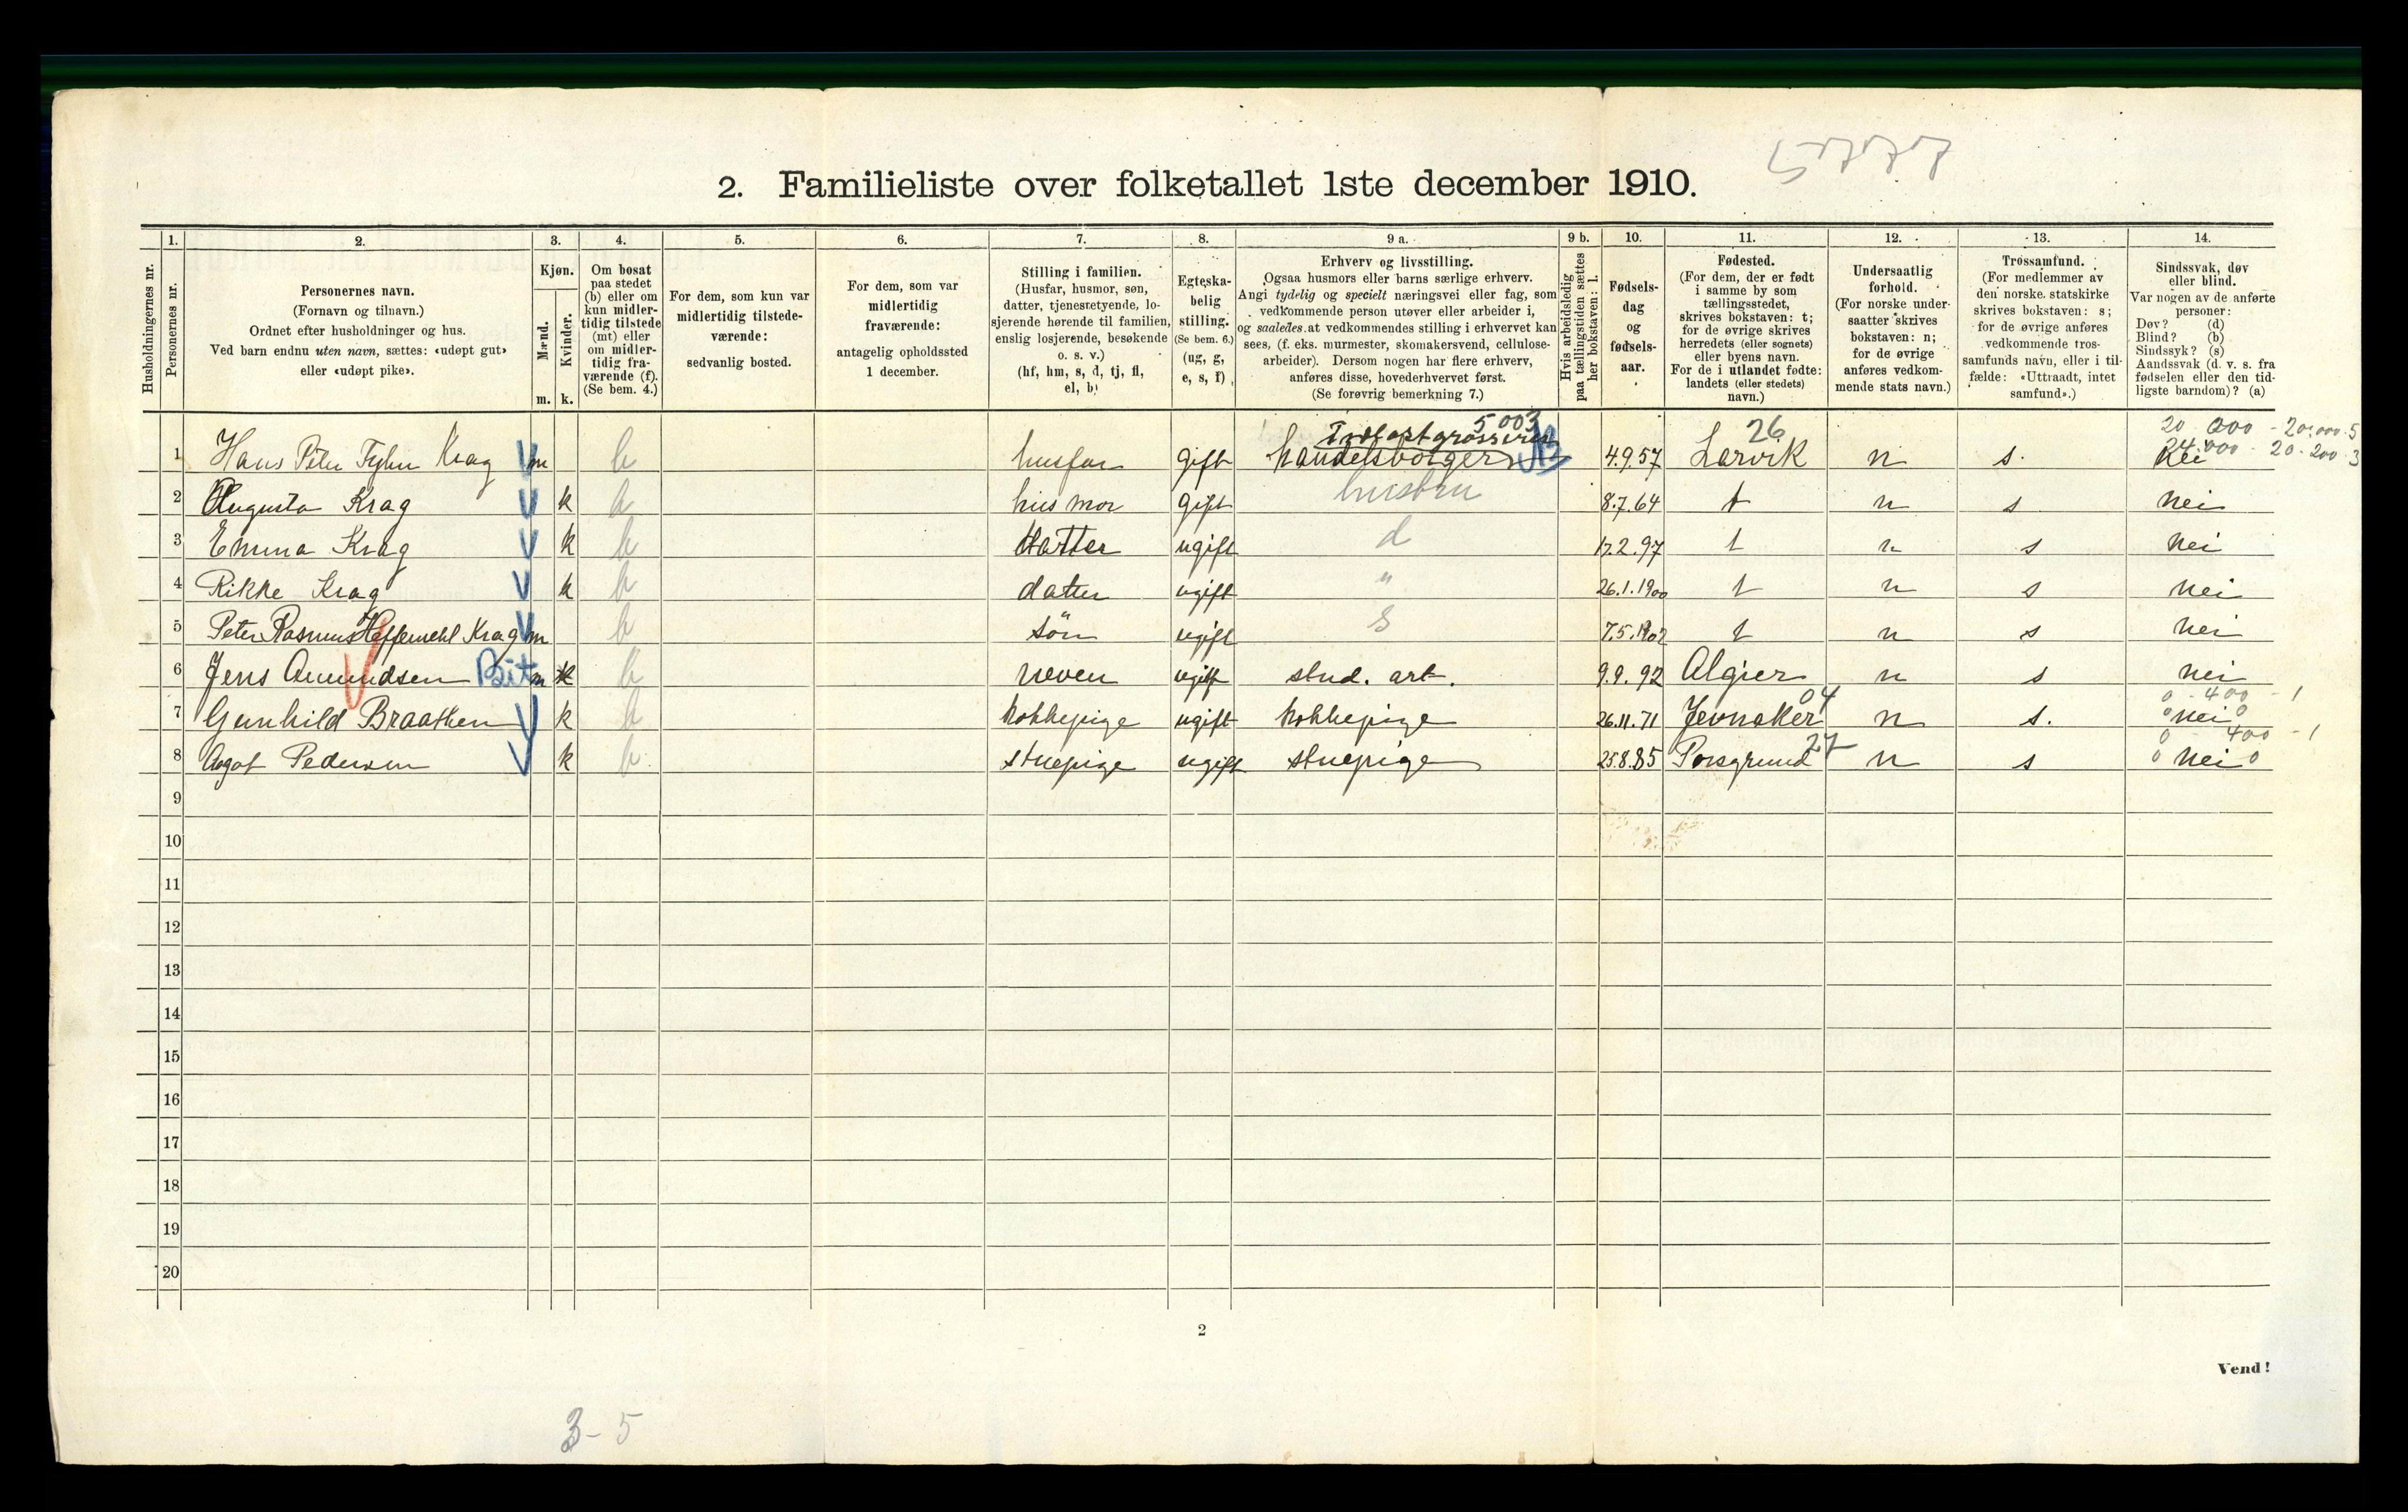 5777
2. Familieliste over folketallet 1ste december 1910.
1. 2. 3. 4. 5. 6. 7. 8. 9 a. 9 b. 10. 11. 12. 13. 14.
Husholdningernes nr.
Personernes nr.
Personernes navn.
(Fornavn og tilnavn.)
Ordnet efter husholdninger og hus.
Ved barn endnu uten navn, sættes: «udøpt gut»
eller «udøpt pike».
Kjøn.
Mænd.
Kvinder.
m. k.
Om bosat
paa stedet
(b) eller om
kun midler-
tidig tilstede
(mt) eller
om midler-
tidig fra-
værende (f).
(Se bem. 4.)
For dem, som kun var
midlertidig tilstede-
værende:
sedvanlig bosted.
For dem, som var
midlertidig
fraværende:
antagelig opholdssted
1 december.
Stilling i familien.
(Husfar, husmor, søn,
datter, tjenestetyende, lo-
sjerende hørende til familien,
enslig losjerende, besøkende
o. s. v.)
(hf, hm, s, d, tj, fl,
el, b)
Egteska-
belig
stilling.
(Se bem. 6.)
(ug, g,
e, s, f)
Erhverv og livsstilling.
Ogsaa husmors eller barns særlige erhverv.
Angi tydelig og specielt næringsvei eller fag, som
vedkommende person utøver eller arbeider i,
og saaledes at vedkommendes stilling i erhvervet kan
sees, (f. eks. murmester, skomakersvend, cellulose-
arbeider). Dersom nogen har flere erhverv,
anføres disse, hovederhvervet først.
(Se forøvrig bemerkning 7.)
Hvis arbeidsledig
paa tællingstiden sættes
her bokstaven: l.
Fødsels-
dag
og
fødsels-
aar.
Fødested.
(For dem, der er født
i samme by som
tællingsstedet,
skrives bokstaven: t;
for de øvrige skrives
herredets (eller sognets)
eller byens navn.
For de i utlandet fødte:
landets (eller stedets)
navn.)
Undersaatlig
forhold.
(For norske under-
saatter skrives
bokstaven: n;
for de øvrige
anføres vedkom-
mende stats navn.)
Trossamfund.
(For medlemmer av
den norske statskirke
skrives bokstaven: s;
for de øvrige anføres
vedkommende tros-
samfunds navn, eller i til-
fælde: «Uttraadt, intet
samfund».)
Sindssvak, døv
eller blind.
Var nogen av de anførte
personer:
Døv? (d)
Blind? (b)
Sindssyk? (s)
Aandssvak (d. v. s. fra
fødselen eller den tid-
ligste barndom)? (a)
5 003 26 20 000 - 20.000.5
24.000 - 20.200 3
1 Hans Peter Krag m b husfar gift handelsborger 4.9.57 Larvik n s. nei
2 Augusta Krag k b husmor gift hustru 8.7.64 t n s nei
3 Emma Krag k b datter ugift d 17.2.97 t n s nei
4 Rikke Krag k b datter ugift " 26.1.1900 t n s nei
5 Peter Rasmus Heffermehl Krag m b sön ugift s 7.5.1902 t n s nei
6 Jens Amundsen m k b neven ugift stud. art. 9.9.92 Algier n s nei
04 0 - 400 - 1
7 Gunhild Braathen k b kokkepige ugift kokkepige 26.11.71 Jevnaker n s. 0 nei 0
27 0 - 400 - 1
8 Aagot Pedersen k b stuepige ugift stuepige 25.8.85 Porsgrund n s 0 nei 0
9
10
11
12
13
14
15
16
17
18
19
20
2
Vend!
3-5